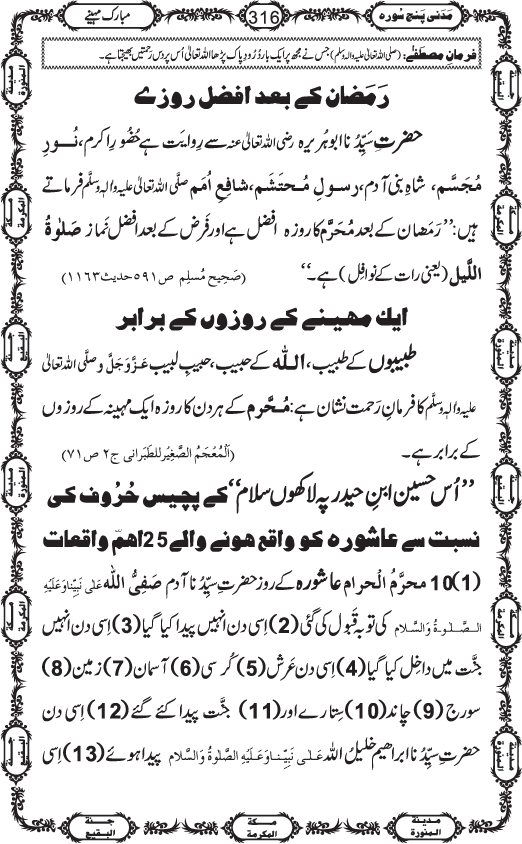 مَدَنی پنج سورہ
316
مبارک مہینے
فرمانِ مصطَفٰے: (صلی اللہ تعالیٰ علیہ والہٖ وسلّم) جس نے مجھ پر ایک بار دُرُودِ پاک پڑھا اللہ تعالیٰ اُس پر دس رحمتیں بھیجتا ہے۔
رَمَضان کے بعد افضل روزے
حضرتِ سیِّدُنا ابوہُریرہ رضی اللہ تعالیٰ عنہ سے رِوایَت ہے حُضُورِ اکرم، نُورِ
مُجَسَّم، شاہِ بنی آدم، رسولِ مُحتَشَم، شافِعِ اُمَم صلَّی اللہ تعالیٰ علیہ والہٖ وسلَّم فرماتے
ہیں: ’’رَمَضان کے بعد مُحَرَّم کا روزہ افضل ہے اور فَرض کے بعد افضل نَماز صَلٰوۃُ
اللَّیل (یعنی رات کے نوافِل) ہے۔‘‘ (صَحِیح مُسلِم ص۵۹۱ حدیث ۱۱۶۳)
ایك مھینے کے روزوں کے برابر
طبیبوں کے طبیب، اللہ کے حبیب، حبیبِ لبیب عَزَّوَجَلَّ و صلَّی اللہ تعالیٰ
علیہ والہٖ وسلَّم کا فرمانِ رَحمت نشان ہے: مُحَرَّم کے ہر دن کا روزہ ایک مہینہ کے روزوں
کے برابر ہے۔ (اَلْمُعْجَمُ الصَّغِیر للطَبَرانی ج۲ ص۷۱)
’’اُس حسین ابنِ حیدر پہ لاکھوں سلام‘‘ کے پچیس حُرُوف کی
نسبت سے عاشورہ کو واقع ہونے والے 25 اھمّ واقِعات
(1) 10 محرَّمُ الْحرام عاشورہ کے روز حضرتِ سیِّدُنا آدم صَفِیُّ اللہ عَلٰی نَبِیِّنَا وَعَلَیْہِ
الصَّلٰوۃُ وَالسَّلام کی توبہ قَبول کی گئی (2) اِسی دن انہیں پیدا کیا گیا (3) اِسی دن انہیں
جنَّت میں داخِل کیا گیا (4) اِسی دن عَرش (5) کُرسی (6) آسمان (7) زمین (8)
سورج (9) چاند (10) سِتارے اور (11) جنَّت پیدا کئے گئے (12) اِسی دن
حضرتِ سیِّدُنا ابراھیم خلیلُ اللہ عَلٰی نَبِیِّنَا وَعَلَیْہِ الصَّلٰوۃُ وَالسَّلام پیدا ہوئے (13) اِسی
مدینۃ المنورۃ
مکۃ المکرمۃ
جنۃ البقیع